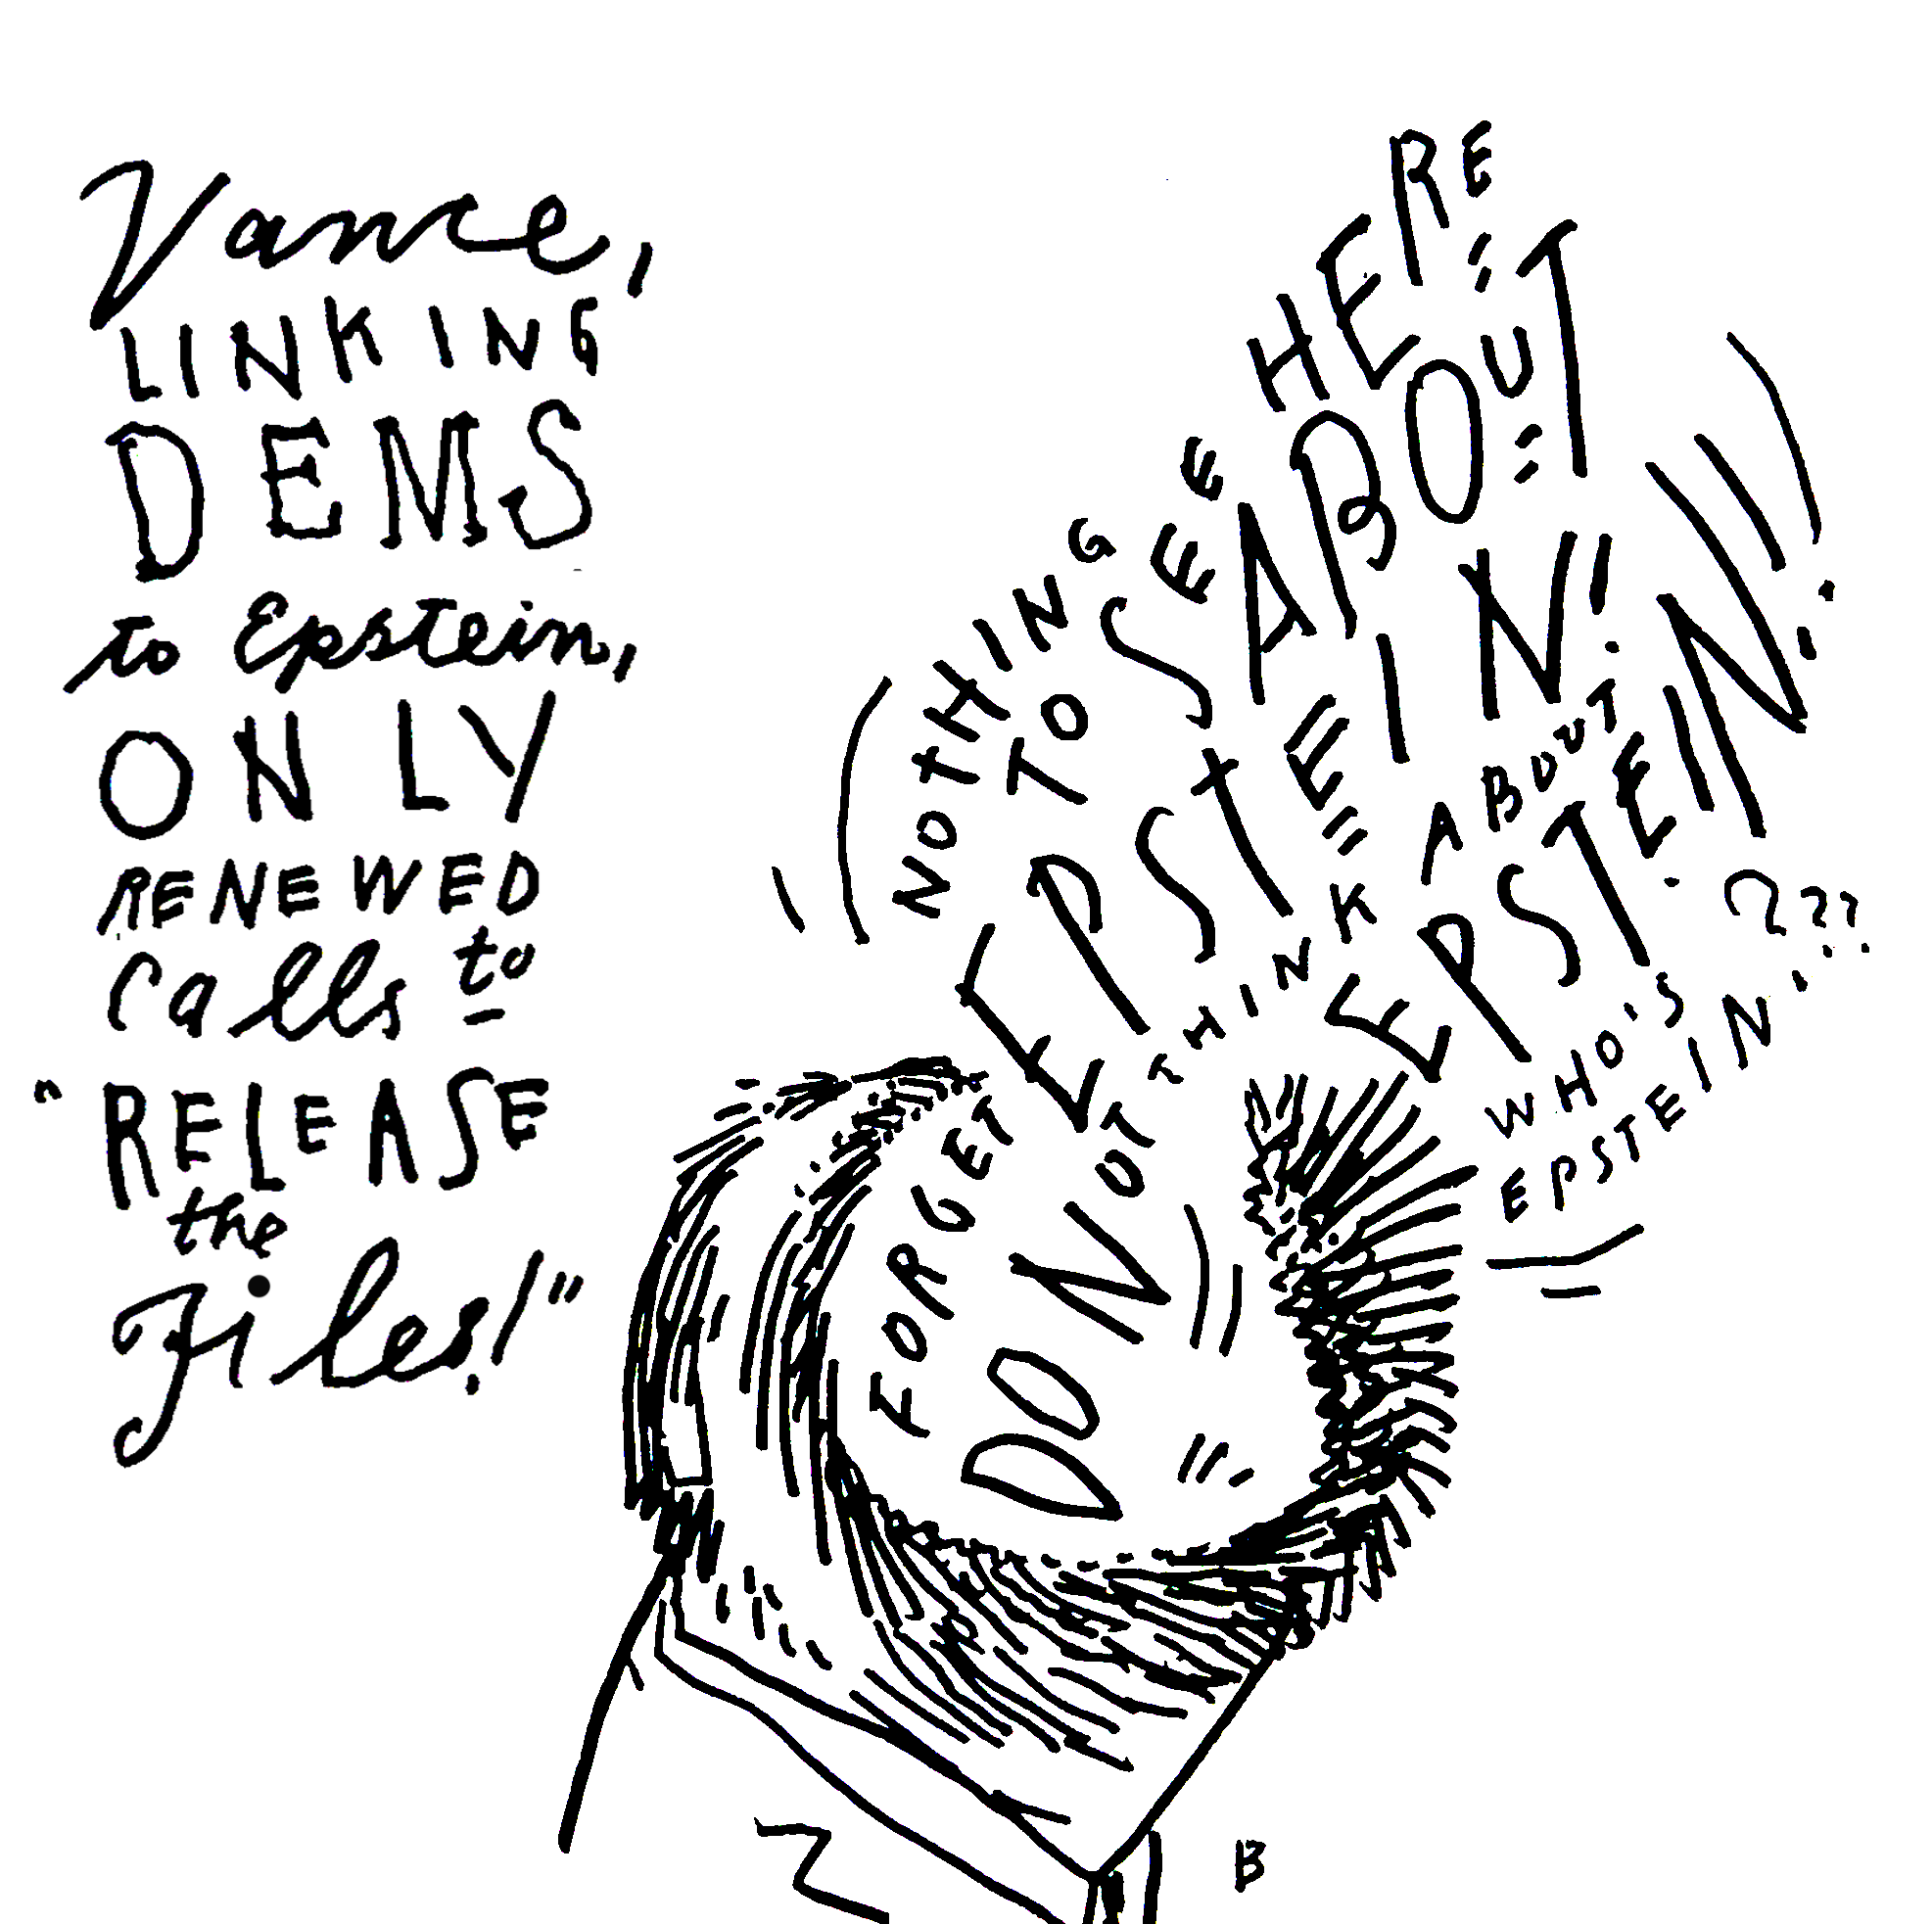 Vance,
LINKING
DEMS
to Epstein,
ONLY
RENEWED
Calls to
"RELEASE
the
Files!"
NOTHING
TO SEE
HERE
FORGET
EPSTEIN!
ABOUT
DO NOT
THINK
ABOUT
EPSTEIN!!!
WHO'S
EPSTEIN???
B